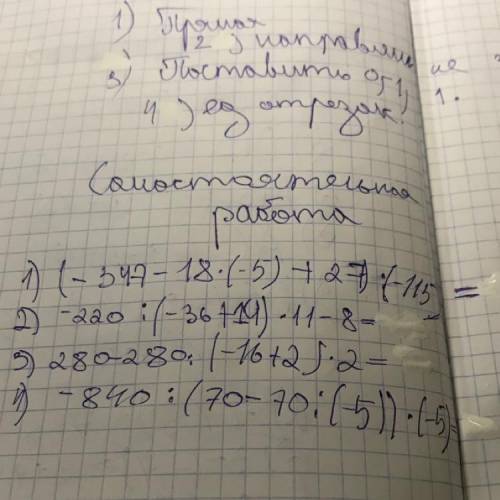 1) Прямая
2) направлени
3) Поставить 0, 1, не
4) ед отрезок. 1.
Самостоятельная
работа
1) (-347-18·(-5)+27):(-115 =
2) -220:(-36+14)·11-8=
3) 280-280:(-16+2)·2=
4) -840:(70-70:(-5))·(-5)=